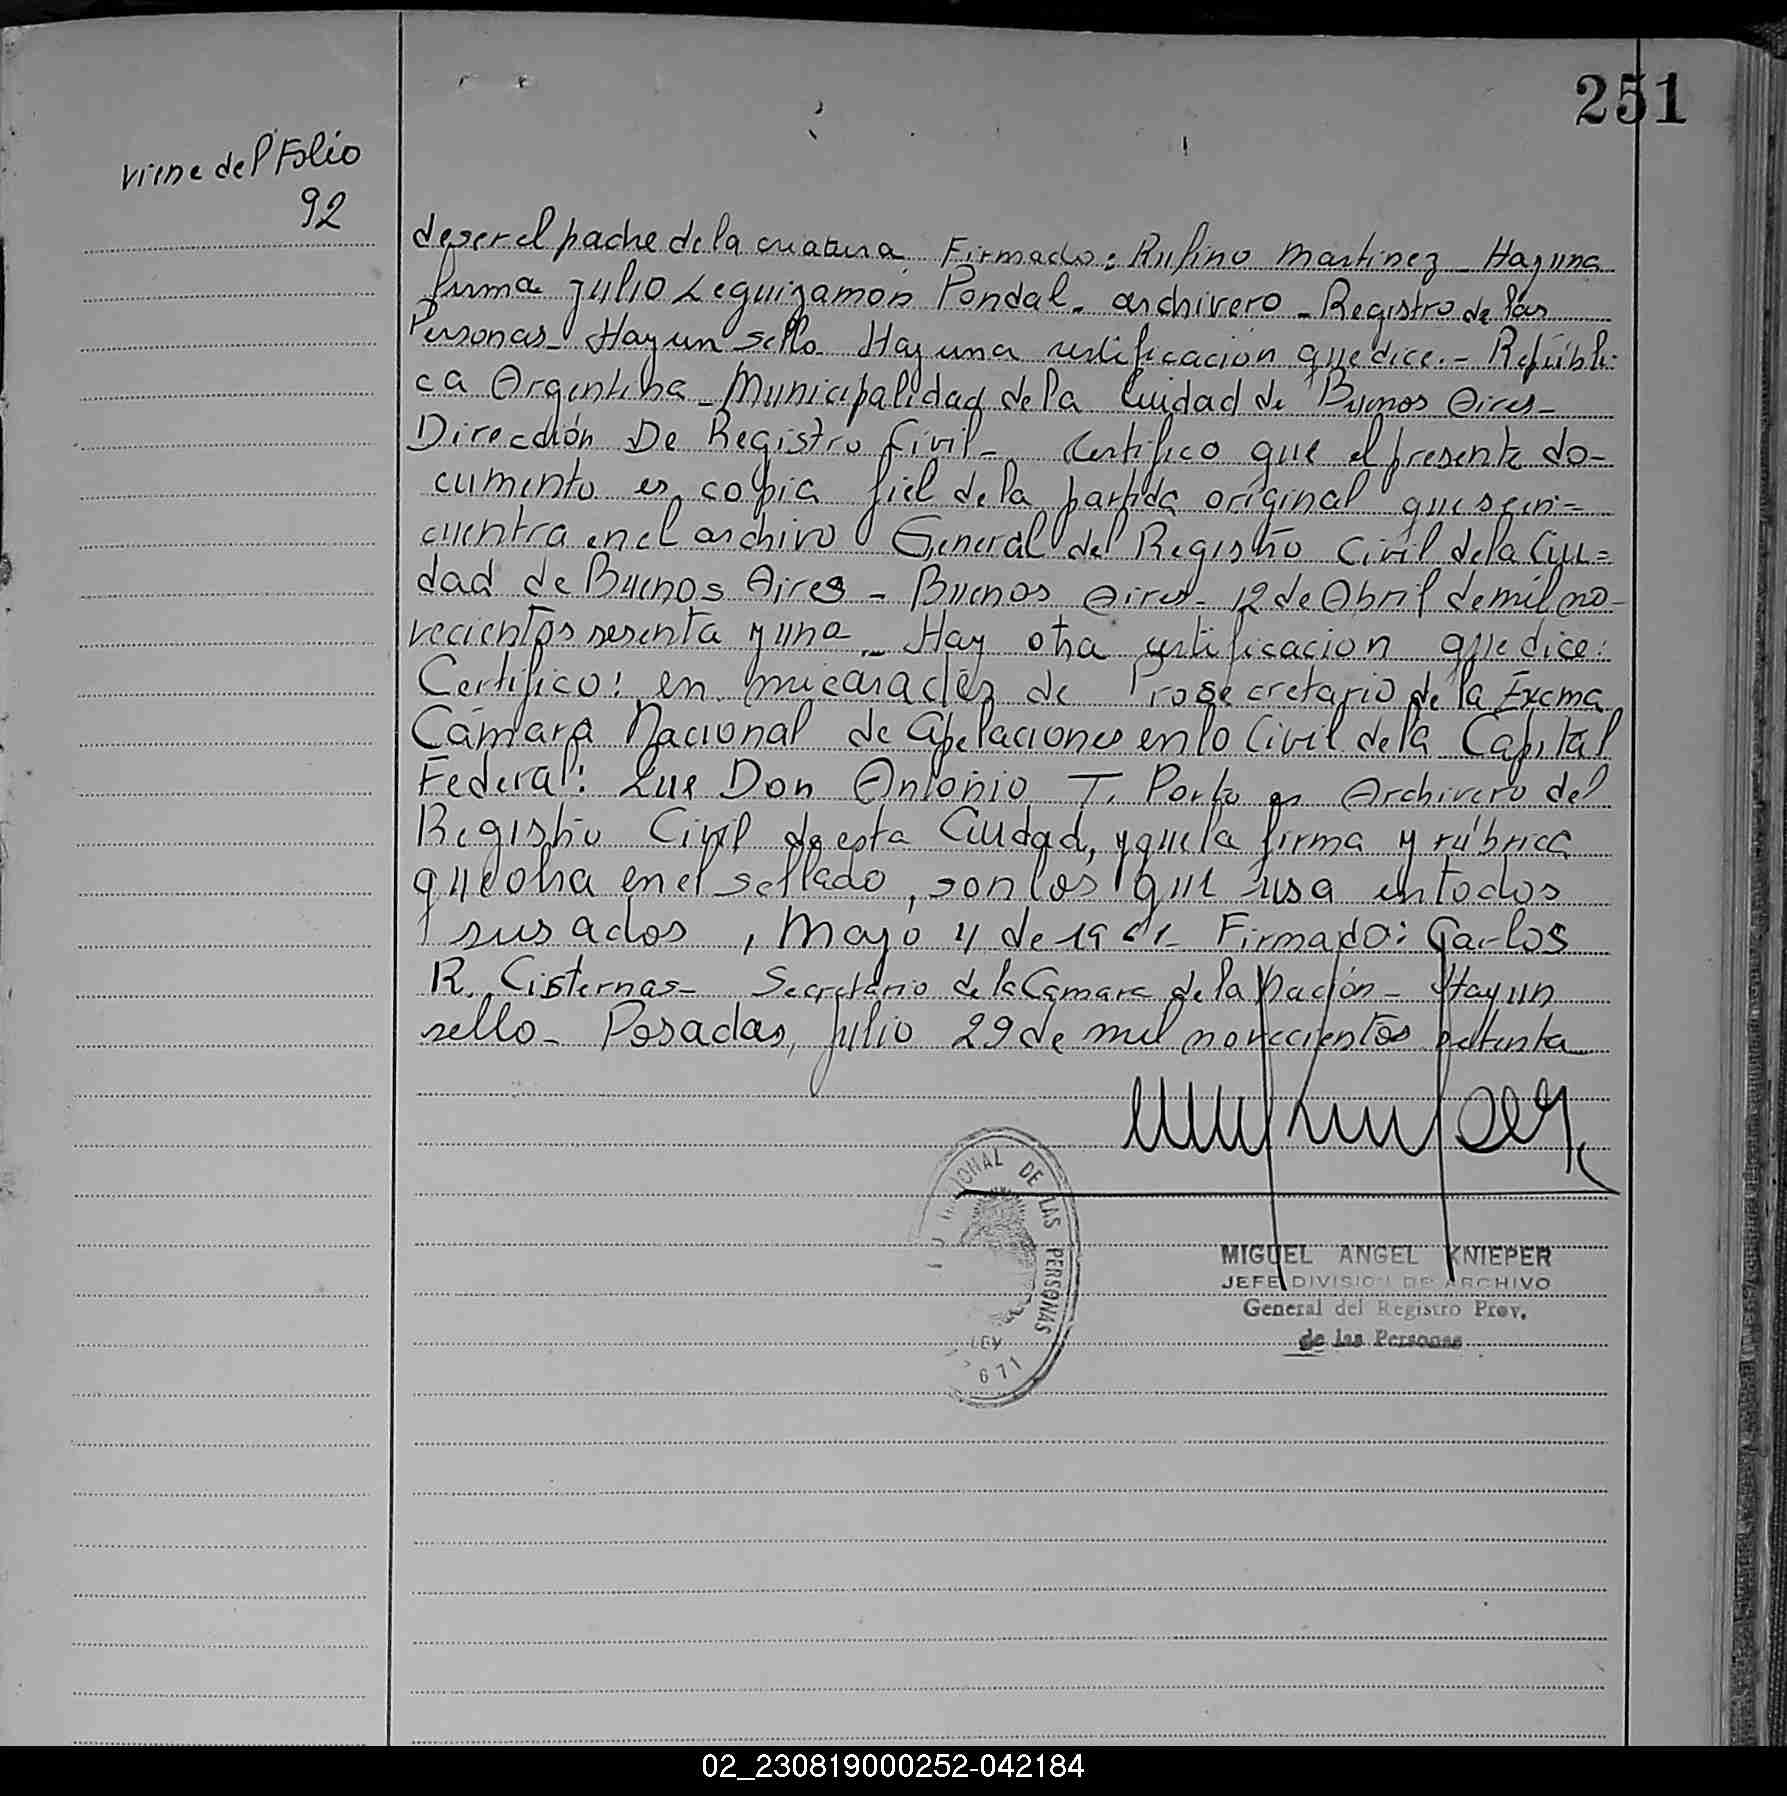 251
viene del Folio
92
de ser el padre de la criatura. Firmado: Rufino Martinez - Hay una
firma Julio Leguizamón Pondal - archivero - Registro de las
Personas - Hay un sello - Hay una certificacion que dice. - Repúbli-
ca Argentina - Municipalidad de la Ciudad de Buenos Aires -
Dirección De Registro Civil - Certifico que el presente do-
cumento es copia fiel de la partida original que se en=
cuentra en el archivo General del Registro Civil de la Ciu=
dad de Buenos Aires - Buenos Aires - 12 de Abril de mil no-
vecientos sesenta y uno - Hay otra certificacion que dice:
Certifico: en mi carácter de Prosecretario de la Excma
Cámara Nacional de Apelaciones en lo Civil de la Capital
Federal: Que Don Antonio T. Porto es Archivero del
Registro Civil de esta Ciudad, y que la firma y rúbrica
que obra en el sellado, son los que usa en todos
sus actos, Mayo 4 de 1961 - Firmado: Carlos
R. Cisternas - Secretario de la Cámara de la Nación - Hay un
sello - Posadas, Julio 29 de mil novecientos setenta
NACIONAL DE LAS PERSONAS
LEY
671
MIGUEL ANGEL KNIEPER
JEFE DIVISION DE ARCHIVO
General del Registro Prov.
de las Personas
02_230819000252-042184